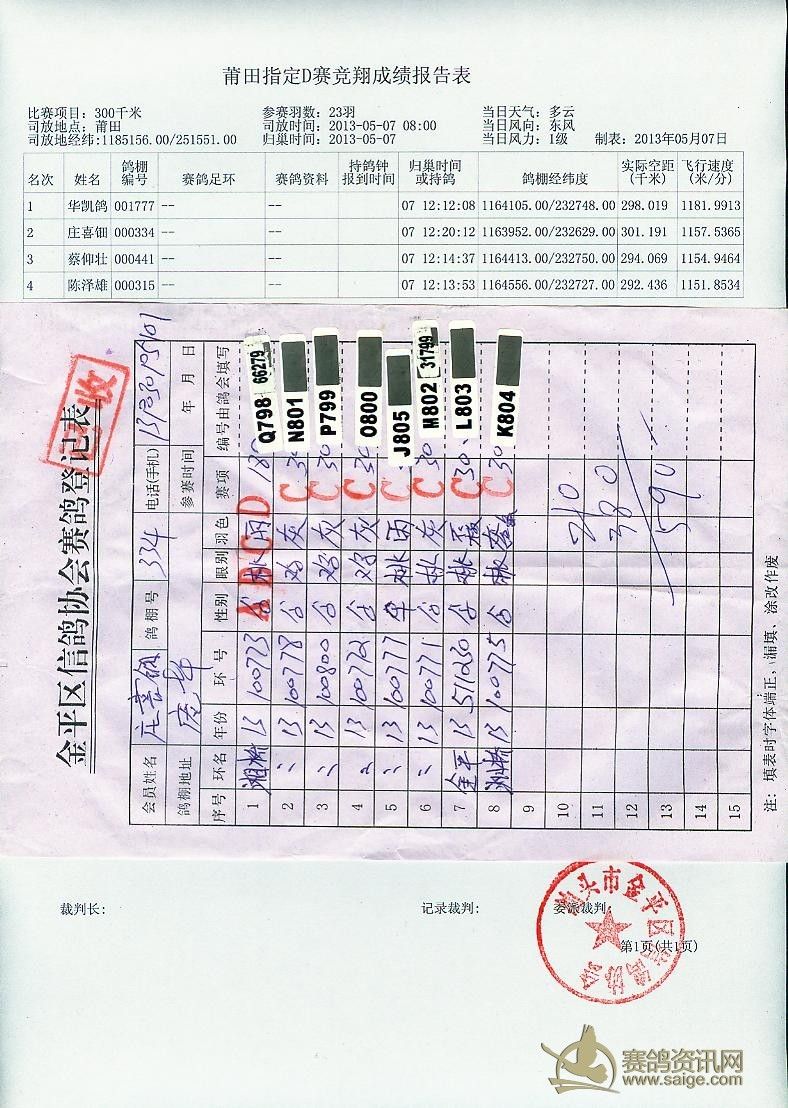 莆田指定D赛竞翔成绩报告表
比赛项目: 300千米 参赛羽数: 23羽 当日天气: 多云
司放地点: 莆田 司放时间: 2013-05-07 08:00 当日风向: 东风
司放地经纬:1185156.00/251551.00 归巢时间: 2013-05-07 当日风力: 1级 制表: 2013年05月07日
名次 姓名 鸽棚编号 赛鸽足环 赛鸽资料 持鸽钟报到时间 归巢时间或持鸽 鸽棚经纬度 实际空距(千米) 飞行速度(米/分)
1 华凯鸽 001777 -- -- 07 12:12:08 1164105.00/232748.00 298.019 1181.9913
2 庄喜钿 000334 -- -- 07 12:20:12 1163952.00/232629.00 301.191 1157.5365
3 蔡仰壮 000441 -- -- 07 12:14:37 1164413.00/232750.00 294.069 1154.9464
4 陈泽雄 000315 -- -- 07 12:13:53 1164556.00/232727.00 292.436 1151.8534
金平区信鸽协会赛鸽登记表
收
会员姓名 庄喜钿 鸽棚号 334 电话(手机)
鸽棚地址 参赛时间 年 月 日
序号 环名 年份 环号 性别 眼别 羽色 赛项 编号由鸽会填写
1 湘桥 13 100723 合 桃 雨 D Q798 66279
2 〃 13 100778 合 鸡 灰 C 30 N801
3 〃 13 100800 合 鸡 灰 C 30 P799
4 〃 13 100722 合 鸡 灰 C 30 O800
5 〃 13 100777 伞 桃 雨 C J805
6 〃 13 100771 合 桃 灰 C 30 M802 31799
7 金平 13 511230 合 桃 C 30 L803
8 湘桥 13 100775 合 桃 C 30 K804
9
10
11
12
13
14
15
210
380
590
注: 填表时字体端正、漏填、涂改作废
裁判长: 记录裁判: 委派裁判:
第1页(共1页)
汕头市金平区信鸽协会
赛鸽资讯网
www.saige.com